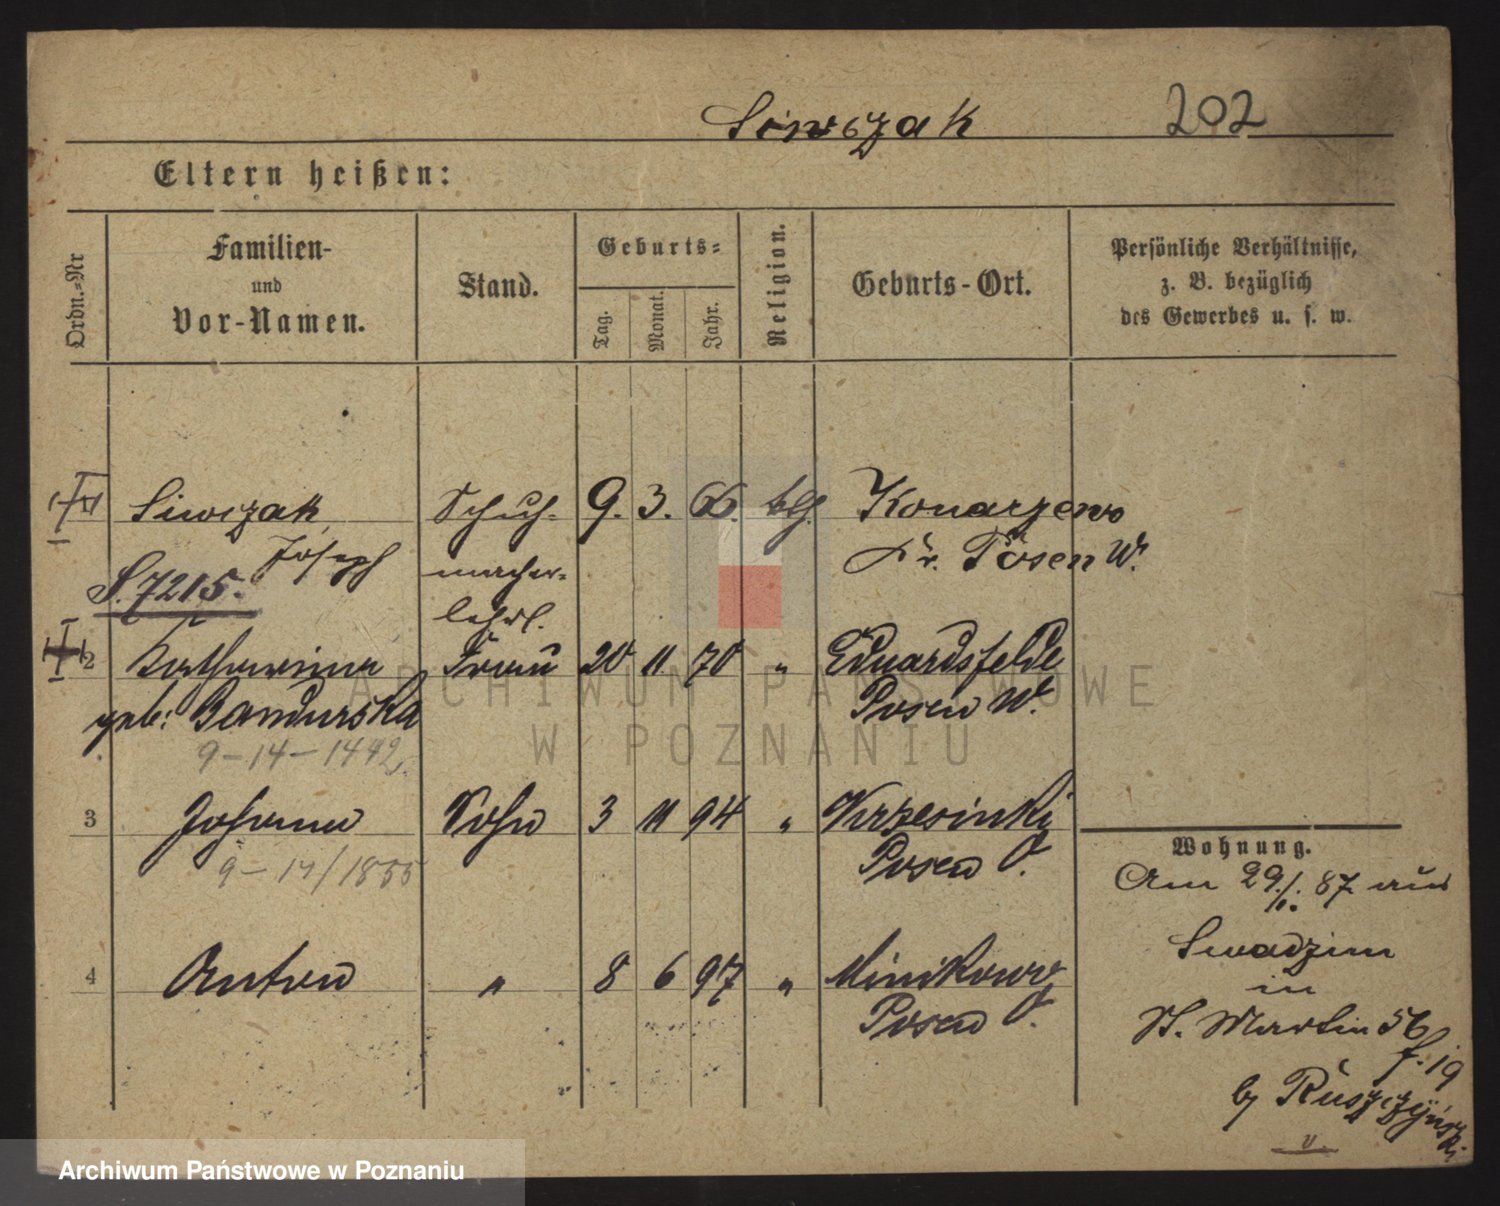 Siwszak 202
Eltern heißen:
Ordn.-Nr
Familien-
und
Vor-Namen.
Stand.
Geburts-
Tag. Monat. Jahr.
Religion.
Geburts-Ort.
Persönliche Verhältnisse,
z. B. bezüglich
des Gewerbes u. s. w.
Siwszak Schuh- 9. 3. Konarzewo
Joseph macher- Kr. Posen W.
S. 7215. lehrl.
2 Katharina Frau 20 11 70 " Eduardsfelde
geb: Bandurska Posen W.
9-14-1442
3 Johann Sohn 3 11 94 "
9-17/1855 Posen O.
4 Anton " 8 6 97 "
Posen O.
Wohnung.
Am 29./1. 87. aus
Swadzim
in
St. Martin 56
f. 19
by Ruszczyński
ARCHIWUM PAŃSTWOWE
W POZNANIU
Archiwum Państwowe w Poznaniu